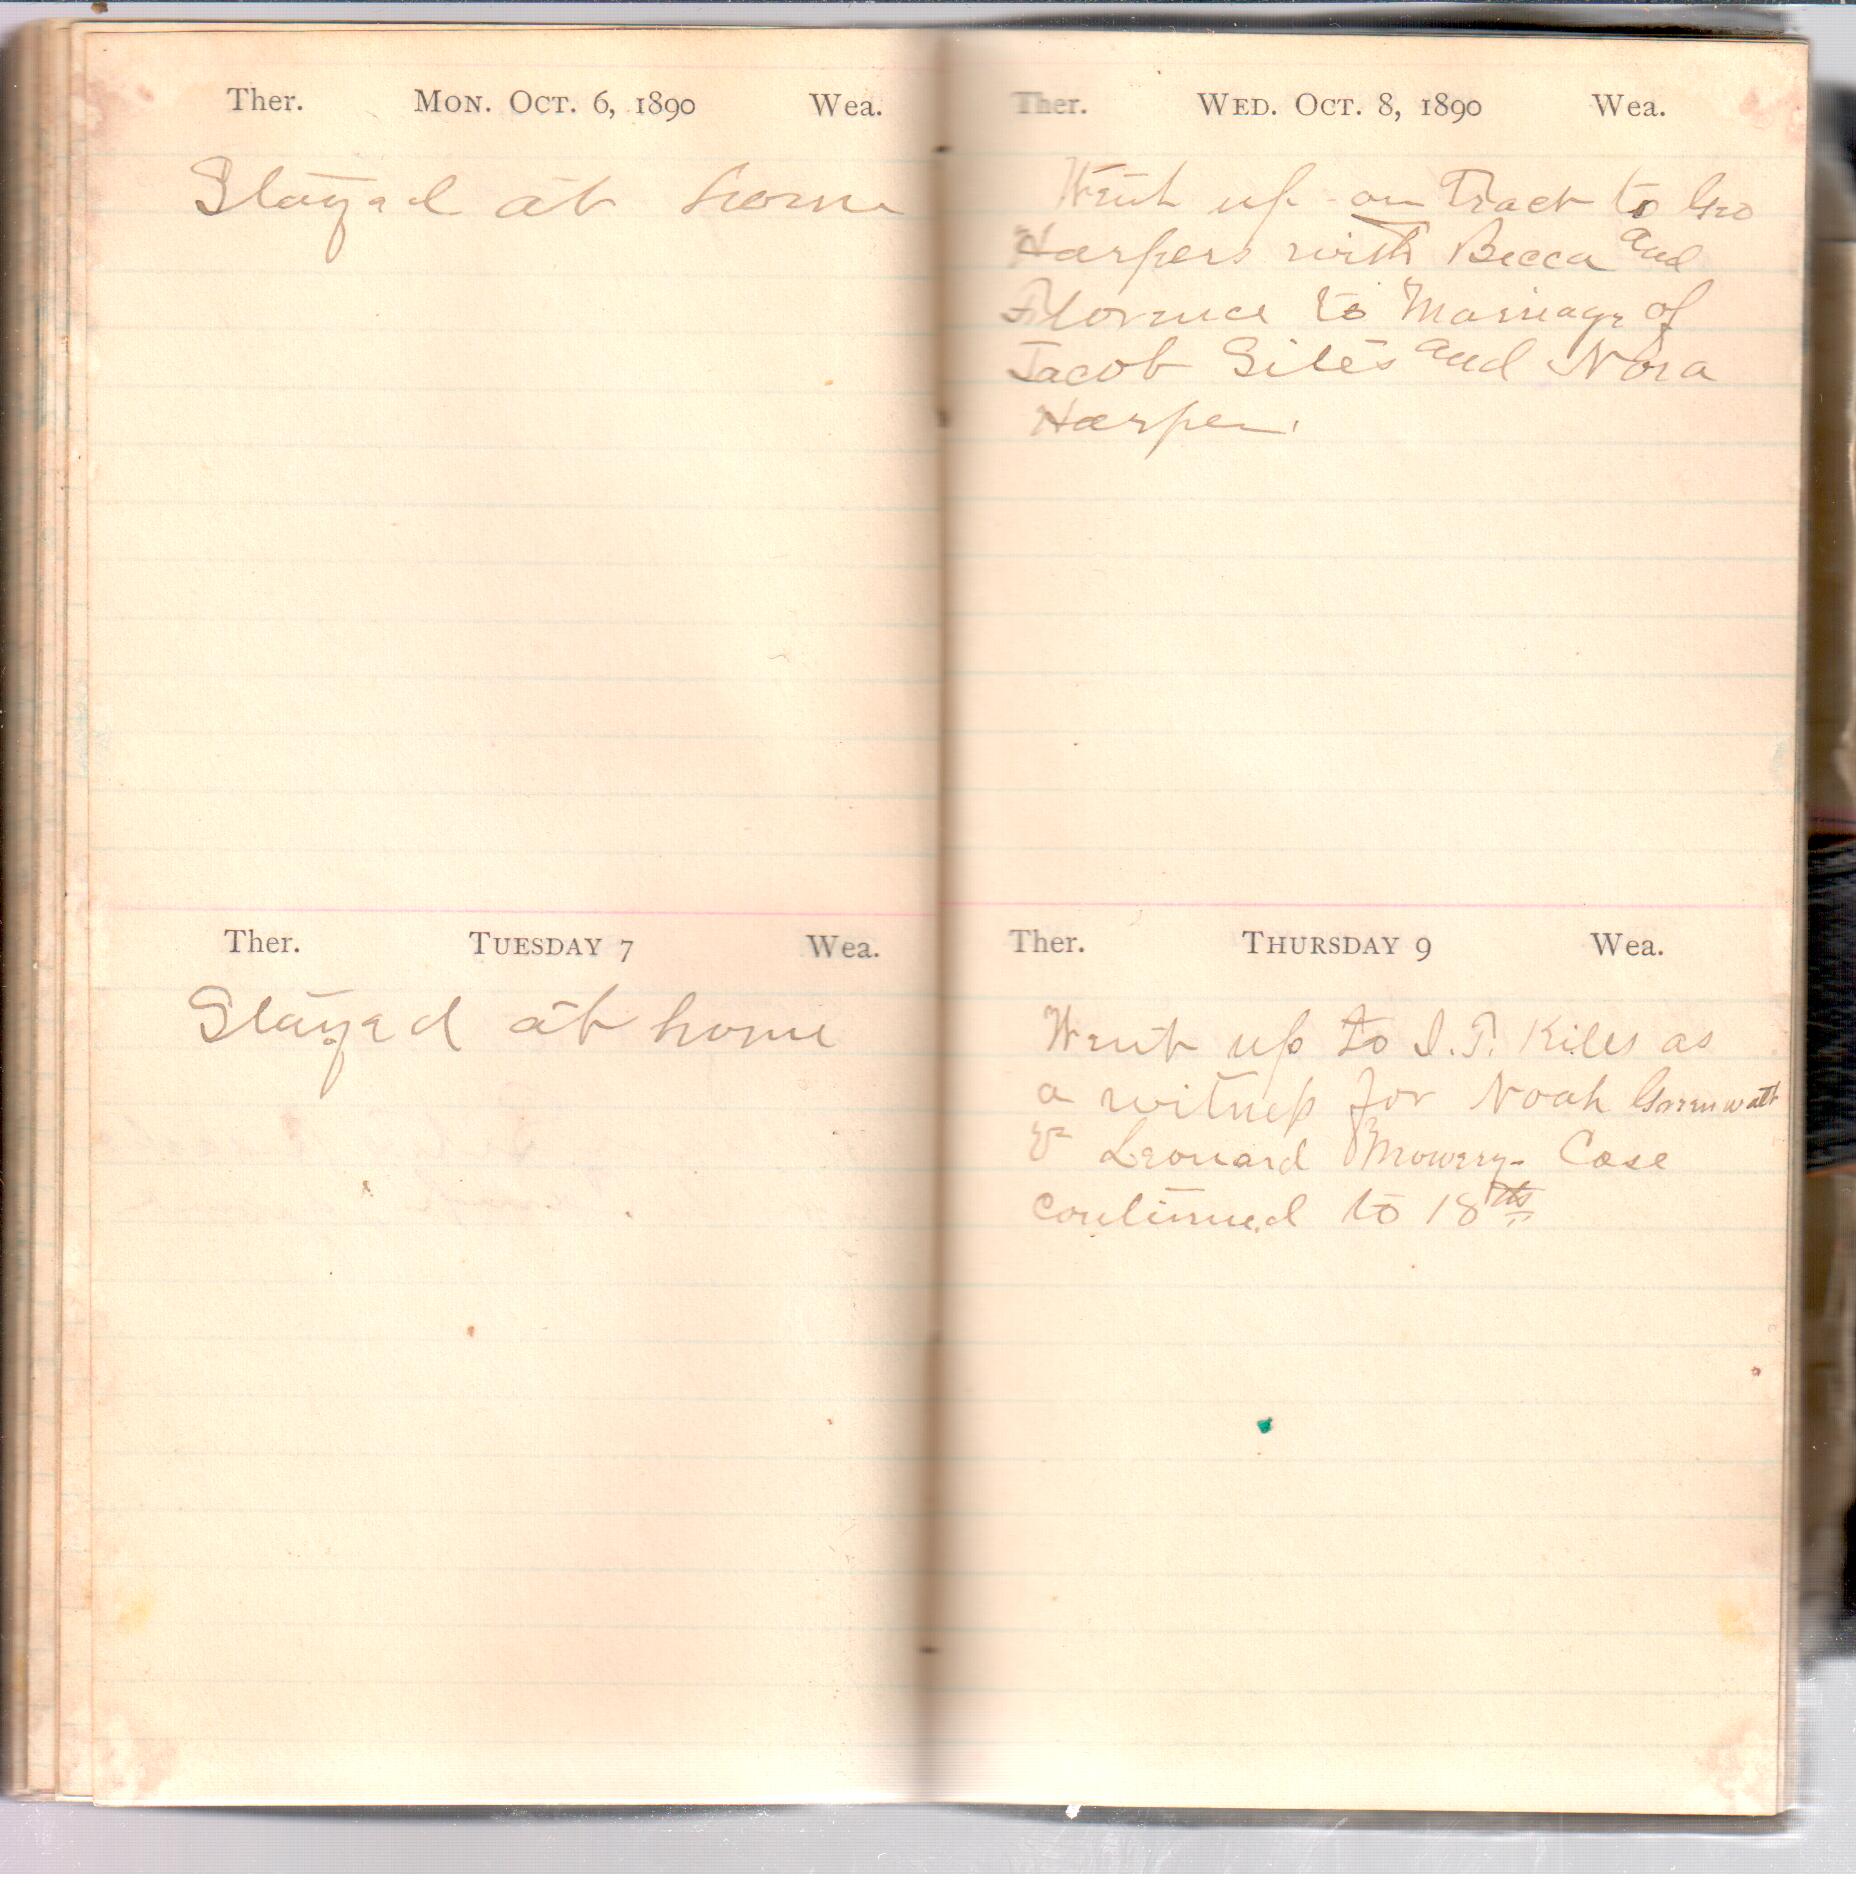 Ther. Mon. Oct. 6, 1890 Wea.
Stayed at home
Ther. Tuesday 7 Wea.
Stayed at home
Ther. Wed. Oct. 8, 1890 Wea.
Went up on Tract to Geo
Harpers with Becca and
Florence to Marriage of
Jacob Sites and Nora
Harper.
Ther. Thursday 9 Wea.
Went up to I. T. Kiles as
a witness for Noah Greenwalt
& Leonard Mowery - Case
continued to 18th